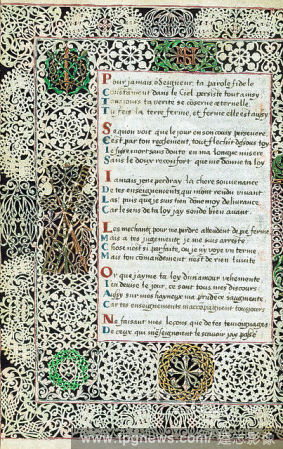 Pour jamais ô Seigneur, ta parole fidele
Constament dans le Ciel persiste tout ausy
Tousjours ta verité se cõserve æternelle
Tu feis la terre ferme, et ferme elle est ausy
Se qu'on voit que le jour en son cours persevere
C'est par ton reglement, tout flechit dessous toy
Je fusse mort sans doute en ma longue misere
Sans le doux reconfort que me donne ta loy
Jamais je ne perdray la chere souvenance
De tes enseignements qui m'ont rendu vivant
Las! puis que je suis tien done moy delivrance
Car le sens de ta loy j'ay sondé bien avant
Les mechants pour me perdre attendent de pié ferme
Mais a tes jugements je me suis arresté
Chose n'est si parfaite, ou je ny voye un terme
Mais ton comandement n'est de rien limité
O que j'ayme ta loy d'un amour vehemente
J'en devise le jour, ce sont tous mes discours
Aussy sur mes hayneux ma prudẽce s'augmente
Car tes enseignements m'accompagnent tousjours
Ne faisant mes leçons que de tes temoignages
De ceux qui m'enseignoient le sçavoir j'ay passé
www.tpgnews.com/ 達志影像